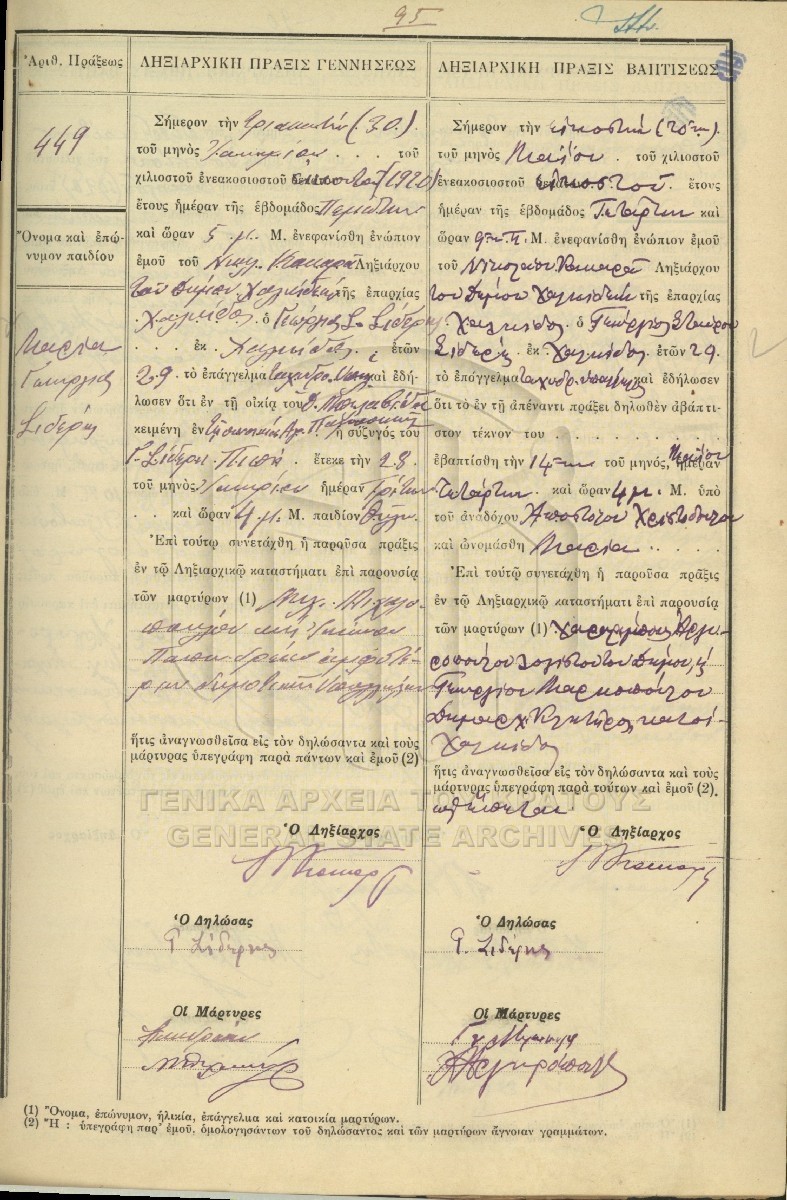 95
Ἀριθ. Πράξεως
449
Ὄνομα καὶ ἐπώ-
νυμον παιδίου
Μαρία
Γεωργίου
Σιδέρη
ΛΗΞΙΑΡΧΙΚΗ ΠΡΑΞΙΣ ΓΕΝΝΗΣΕΩΣ
Σήμερον τὴν τριακοστὴν (30).
τοῦ μηνὸς Ἰανουαρίου . . . τοῦ
χιλιοστοῦ ἐνεακοσιοστοῦ εἰκοστοῦ (1920)
ἔτους ἡμέραν τῆς ἑβδομάδος Πέμπτην
καὶ ὥραν 5 μ. Μ. ἐνεφανίσθη ἐνώπιον
ἐμοῦ τοῦ Νικολ. Κακαρᾶ Ληξιάρχου
τοῦ Δήμου Χαλκιδέων τῆς ἐπαρχίας
Χαλκίδος ὁ Γεώργιος Σ. Σιδέρης
. . . ἐκ Χαλκίδος ἐτῶν
29 τὸ ἐπάγγελμα ταχυδρ. ὑπάλ. καὶ ἐδή-
λωσεν ὅτι ἐν τῇ οἰκίᾳ τοῦ
κειμένῃ ἐν ἡ σύζυγός του
Γ. Σιδέρη ἔτεκε τὴν 28
τοῦ μηνὸς Ἰανουαρίου ἡμέραν Τρίτην
. . καὶ ὥραν 4 μ. Μ. παιδίον θῆλυ.
Ἐπὶ τούτῳ συνετάχθη ἡ παροῦσα πράξις
ἐν τῷ Ληξιαρχικῷ καταστήματι ἐπὶ παρουσίᾳ
τῶν μαρτύρων (1)
ἀμφοτέ-
ρων δημοτικῶν ὑπαλλήλων
ἥτις ἀναγνωσθεῖσα εἰς τὸν δηλώσαντα καὶ τοὺς
μάρτυρας ὑπεγράφη παρὰ πάντων καὶ ἐμοῦ (2)
Ὁ Ληξίαρχος
Ὁ Δηλώσας
Γ Σιδέρης
Οἱ Μάρτυρες
ΛΗΞΙΑΡΧΙΚΗ ΠΡΑΞΙΣ ΒΑΠΤΙΣΕΩΣ
Σήμερον τὴν εἰκοστὴν (20ην).
τοῦ μηνὸς Μαΐου . τοῦ χιλιοστοῦ
ἐνεακοσιοστοῦ εἰκοστοῦ . ἔτους
ἡμέραν τῆς ἑβδομάδος Τετάρτην καὶ
ὥραν 9ην π. Μ. ἐνεφανίσθη ἐνώπιον ἐμοῦ
τοῦ Νικολάου Κακαρᾶ Ληξιάρχου
τοῦ Δήμου Χαλκιδέων τῆς ἐπαρχίας
Χαλκίδος ὁ Γεώργιος Σταύρου
Σιδέρης ἐκ Χαλκίδος ἐτῶν 29
τὸ ἐπάγγελμα ταχυδρ. ὑπάλ. καὶ ἐδήλωσεν
ὅτι τὸ ἐν τῇ ἀπέναντι πράξει δηλωθὲν ἀβάπτι-
στον τέκνον του . . . . . . . .
ἐβαπτίσθη τὴν 14ην τοῦ μηνός, Μαΐου ἡμέραν
Τετάρτην . καὶ ὥραν 4 μ. Μ. ὑπὸ
τοῦ ἀναδόχου Ἀποστόλου Χριστοδούλου
καὶ ὠνομάσθη Μαρία . . . .
Ἐπὶ τούτῳ συνετάχθη ἡ παροῦσα πρᾶξις
ἐν τῷ Ληξιαρχικῷ καταστήματι ἐπὶ παρουσίᾳ
τῶν μαρτύρων (1) Χαραλάμπους Ἀργυ-
ροπούλου λογιστοῦ τοῦ Δήμου, κ
Γεωργίου Μαρκοπούλου
Δημαρχ. κλητῆρος κατοί-
Χαλκίδος
ἥτις ἀναγνωσθεῖσα εἰς τὸν δηλώσαντα καὶ τοὺς
μάρτυρας ὑπεγράφη παρὰ τούτων καὶ ἐμοῦ (2).
Ὁ Ληξίαρχος
Ὁ Δηλώσας
Γ. Σιδέρης
Οἱ Μάρτυρες
ΓΕΝΙΚΑ ΑΡΧΕΙΑ ΤΟΥ ΚΡΑΤΟΥΣ
GENERAL STATE ARCHIVES
(1) Ὄνομα, ἐπώνυμον, ἡλικία, ἐπάγγελμα καὶ κατοικία μαρτύρων.
(2) Ἢ : ὑπεγράφη παρ' ἐμοῦ, ὁμολογησάντων τοῦ δηλώσαντος καὶ τῶν μαρτύρων ἄγνοιαν γραμμάτων.